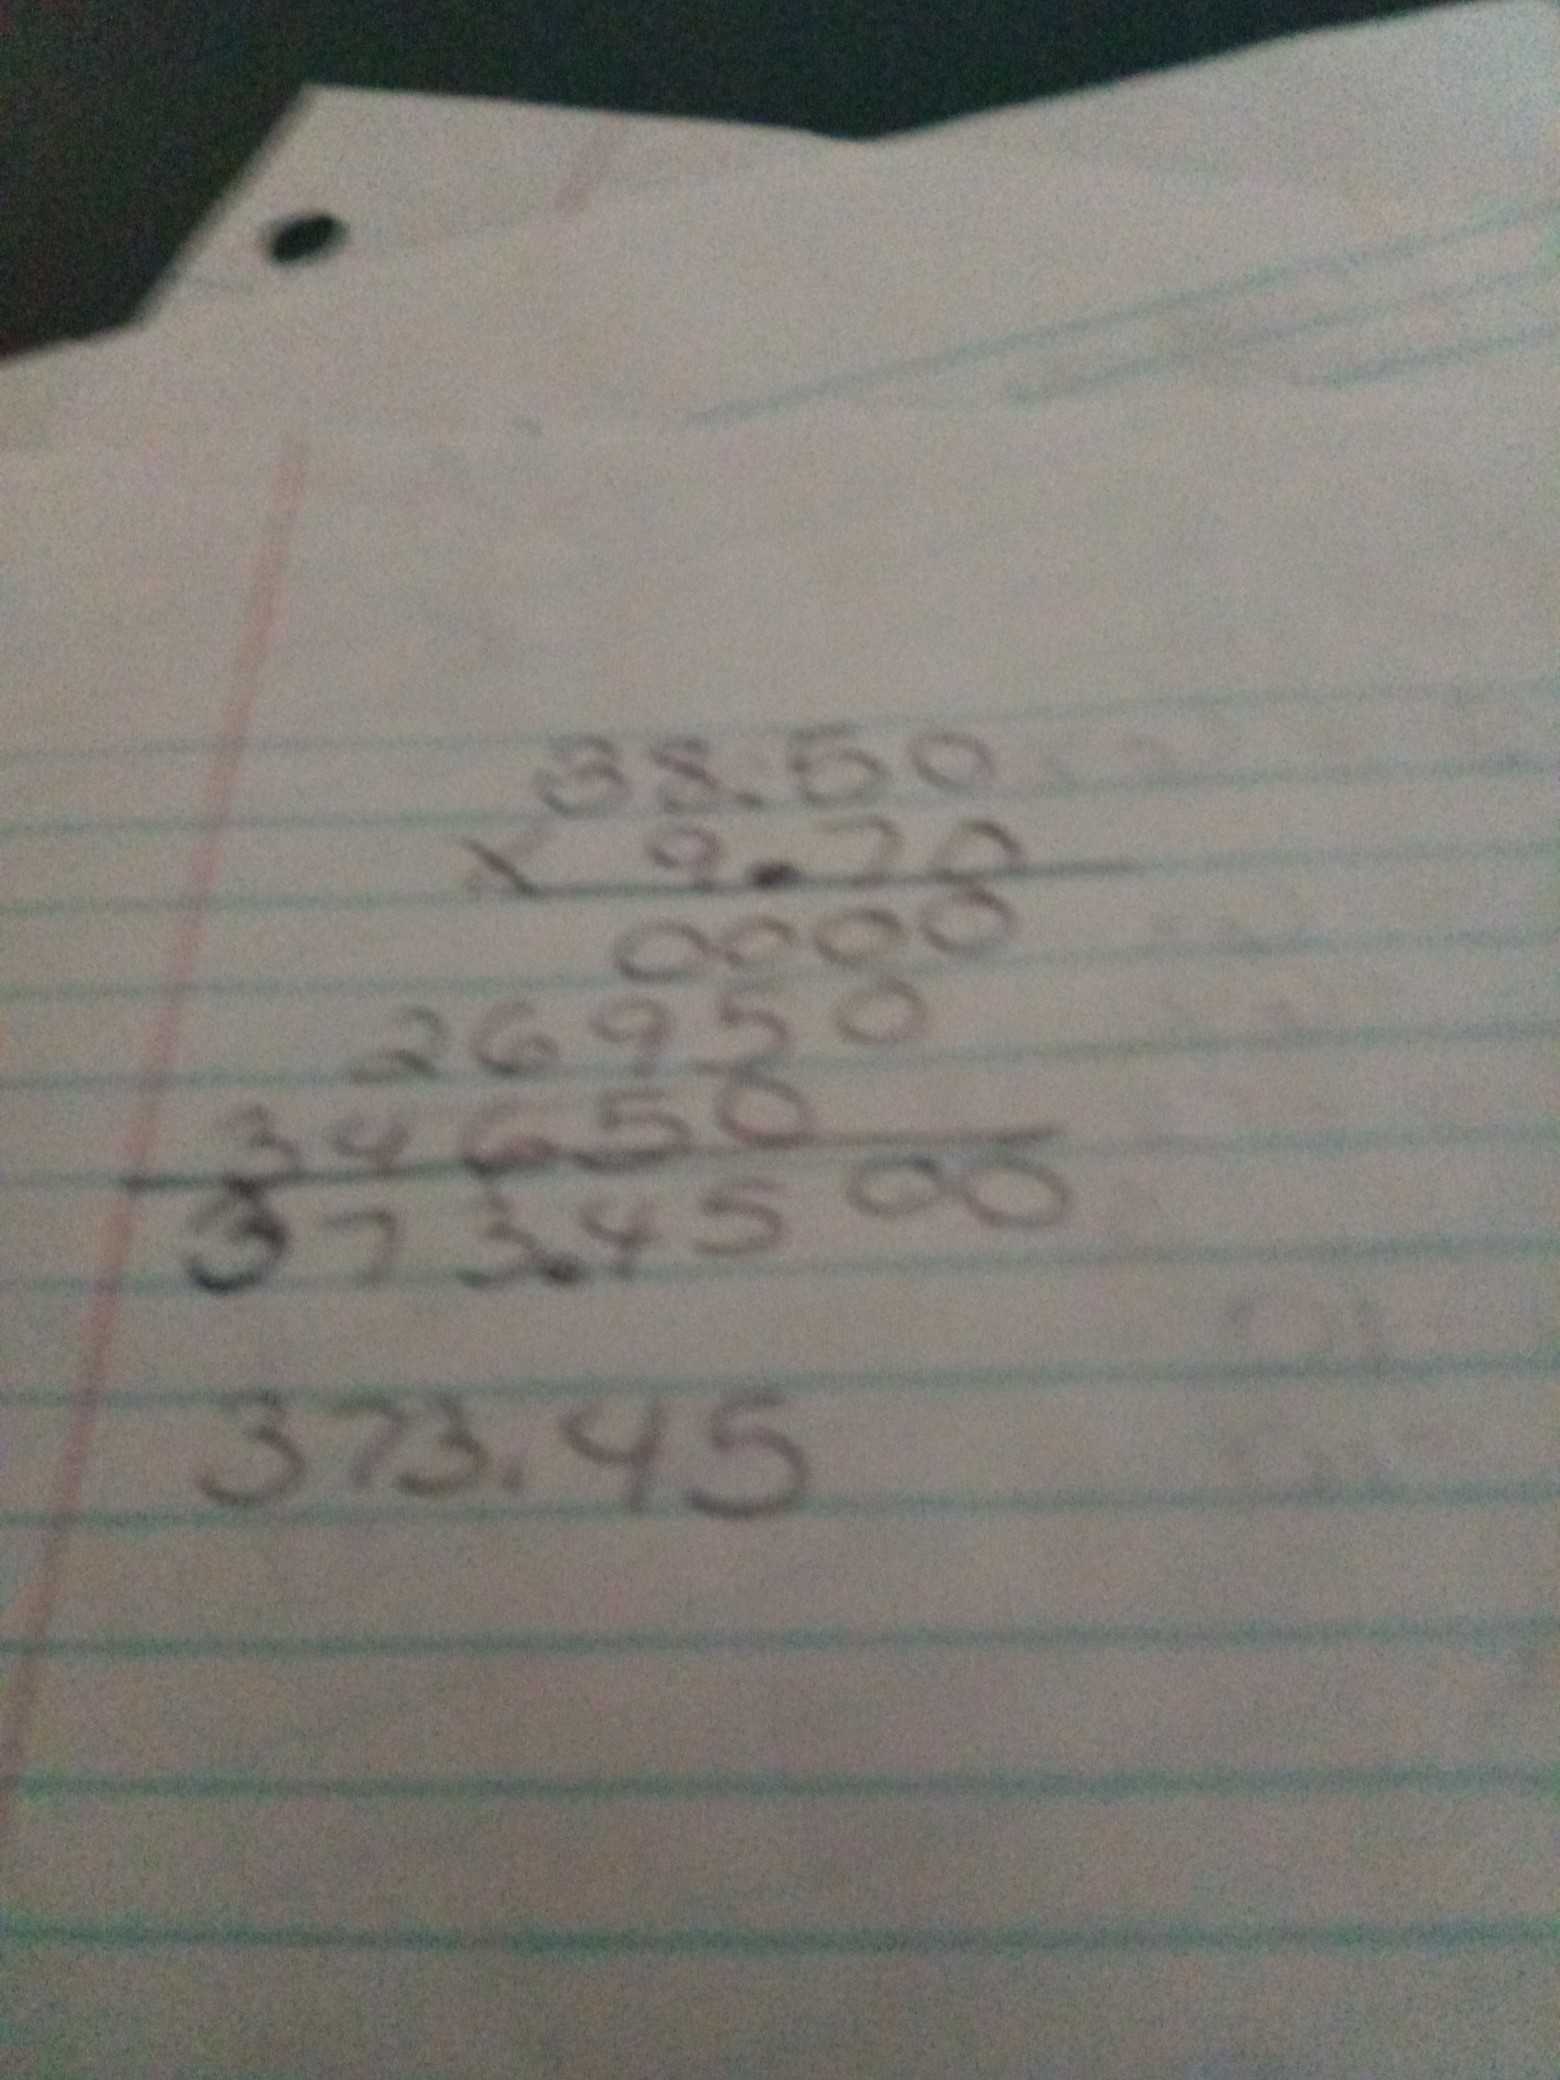 38.50
× 9.70
0000
26950
34650
373.4500
373.45